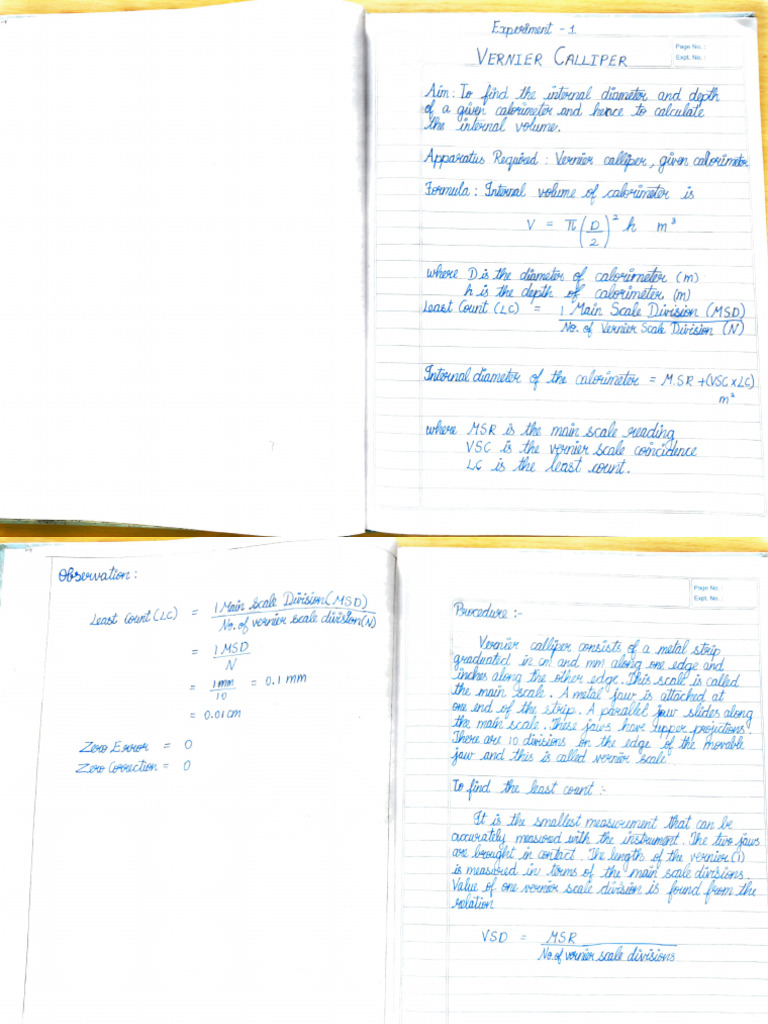 Experiment - 1
Page No. :
Expt. No. :
VERNIER CALLIPER
Aim : To find the internal diameter and depth
of a given calorimeter and hence to calculate
the internal volume.
Apparatus Required : Vernier calliper, given calorimeter
Formula : Internal volume of calorimeter is
V = π(D/2)² h m³
where D is the diameter of calorimeter (m)
h is the depth of calorimeter (m)
Least Count (LC) = 1 Main Scale Division (MSD)
No. of Vernier Scale Division (N)
Internal diameter of the calorimeter = M.SR + (VSC x LC)
m²
where MSR is the main scale reading
VSC is the vernier scale coincidence
LC is the least count.
Observation :
Least Count (LC) = 1 Main Scale Division (MSD)
No. of vernier scale division (N)
= 1 MSD
N
= 1mm = 0.1 mm
10
= 0.01 cm
Zero Error = 0
Zero Correction = 0
Page No. :
Expt. No. :
Procedure :-
Vernier calliper consists of a metal strip
graduated in cm and mm along one edge and
inches along the other edge. This scale is called
the main scale. A metal jaw is attached at
one end of the strip. A parallel jaw slides along
the main scale. These jaws have upper projections.
There are 10 divisions on the edge of the movable
jaw and this is called vernier scale.
To find the least count :-
It is the smallest measurement that can be
accurately measured with the instrument. The two jaws
are brought in contact. The length of the vernier (1)
is measured in terms of the main scale divisions.
Value of one vernier scale division is found from the
relation
VSD = MSR
No. of vernier scale divisions